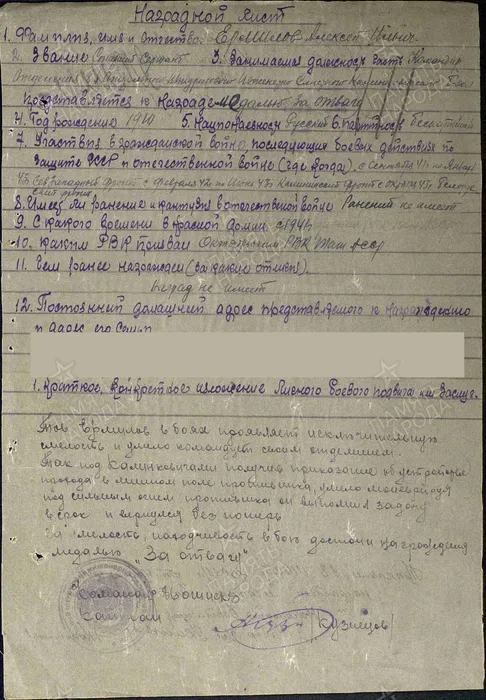 Наградной лист
1. Фамилия, имя и отчество: Ермилов Алексей
2. Звание Старший Сержант 3. Занимаемая должность, часть Командир
Отделения
представляется к награде медалью за отвагу
4. Год рождения 19 5. Национальность Русский 6. партийность Беспартийный
7. Участвия в гражданской войне, последующих боевых действиях по
защите СССР и отечественной войне (где, когда). с Сентября 41 по Январь
42 Сев Западный фронт с Февраля 42 по Июнь 43 Калининский фронт с 43
фронт
8. Имеет ли ранение и контузии в отечественной войне Ранений не имеет
9. С какого времени в красной Армии с 1941
10. каким РВК призван Октябрьским РВК АССР
11. Чем ранее награжден (за какие отличия).
Наград не имеет
12. Постоянный домашний адрес представляемого к награждению
и адрес его семьи
1. Краткое, конкретное изложение личного боевого подвига или заслуг.
Тов Ермилов в боях проявляет исключительную
смелость и умело командует своим отделением.
Так под получив приказание об устройстве
прохода в минном поле противника, умело маневрируя
под сильным огнем противника он выполнил задачу
в срок и вернулся без потерь
За смелость, находчивость в бою достоин награждения
медалью „За отвагу"
Командир
Капитан (Кузнецов)
ПАМЯТЬ НАРОДА